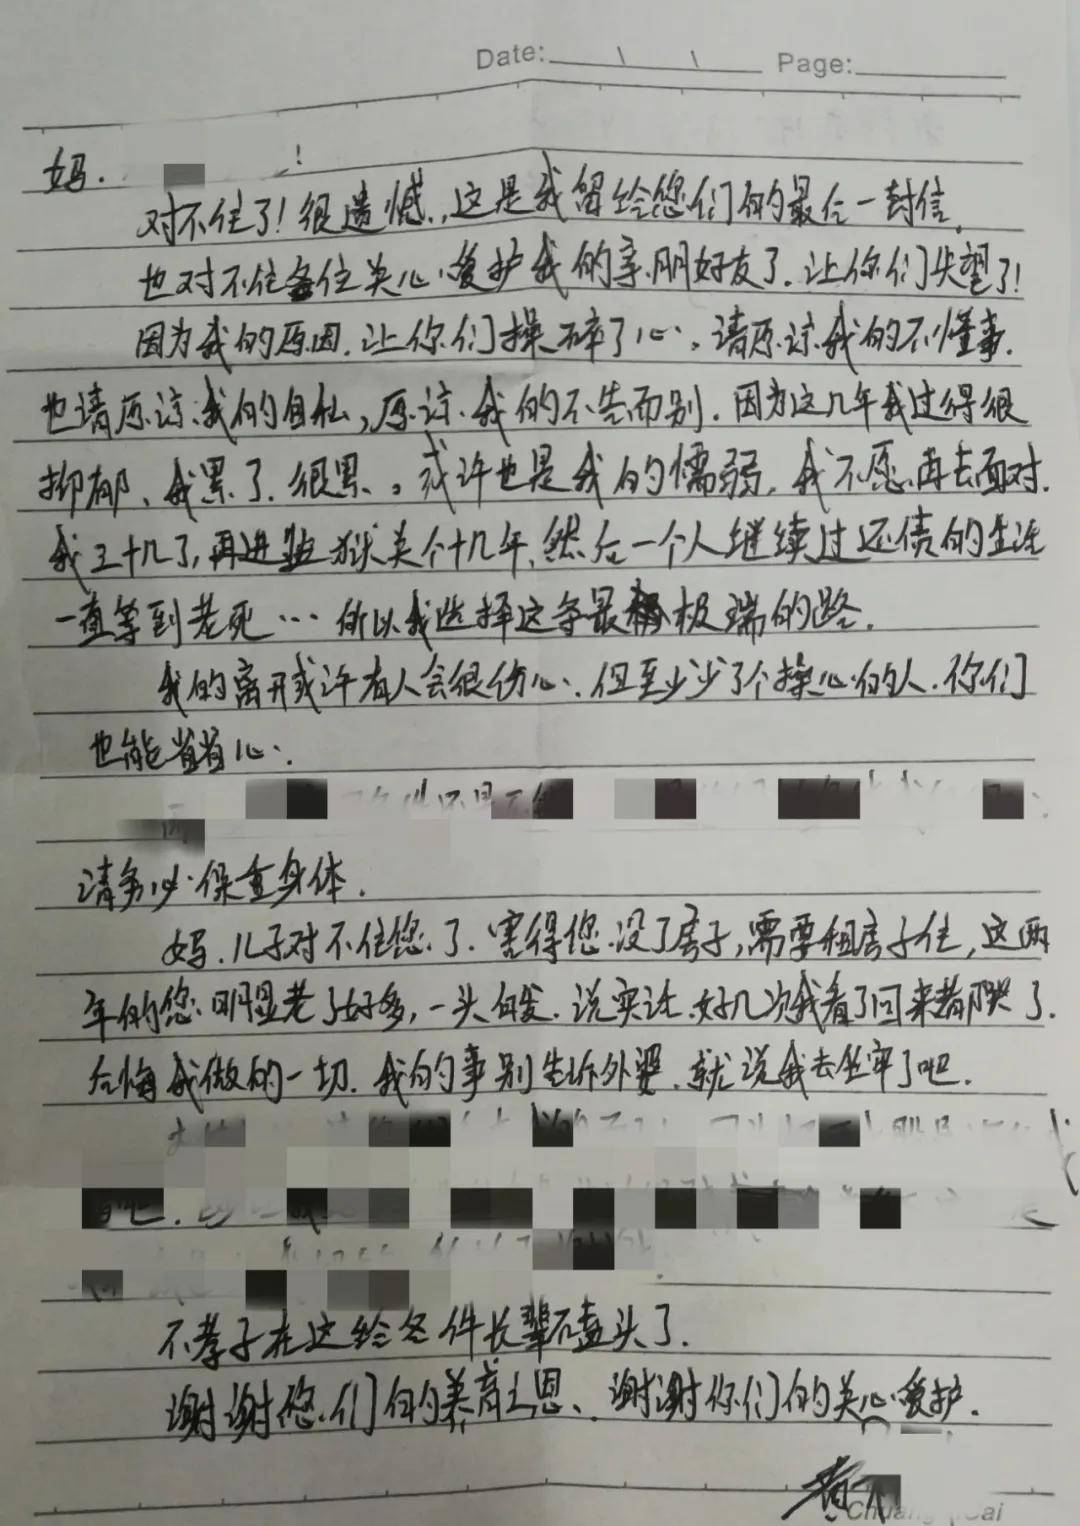 Date: \ \ Page:
妈. !
对不住了!很遗憾,这是我留给您们的最后一封信.
也对不住各位关心爱护我的亲朋好友了.让你们失望了!
因为我的原因.让你们操碎了心.请原谅我的不懂事.
也请原谅我的自私,原谅我的不告而别.因为这几年我过得很
抑郁、我累了.很累。或许也是我的懦弱.我不愿再去面对.
我三十几了,再进监狱关个十几年.然后一个人继续过还债的生活
一直等到老死…所以我选择这条最极端的路.
我的离开或许有人会很伤心.但至少少了个操心的人.你们
也能省省心.
请务必保重身体.
妈.儿子对不住您了.害得您没了房子,需要租房子住,这两
年的您明显老了好多,一头白发.说实话.好几次我看了回来都哭了.
后悔我做的一切.我的事别告诉外婆.就说我去坐牢了吧.
吧.
不孝子在这给各位长辈磕头了.
谢谢您们的养育之恩、谢谢你们的关心爱护.